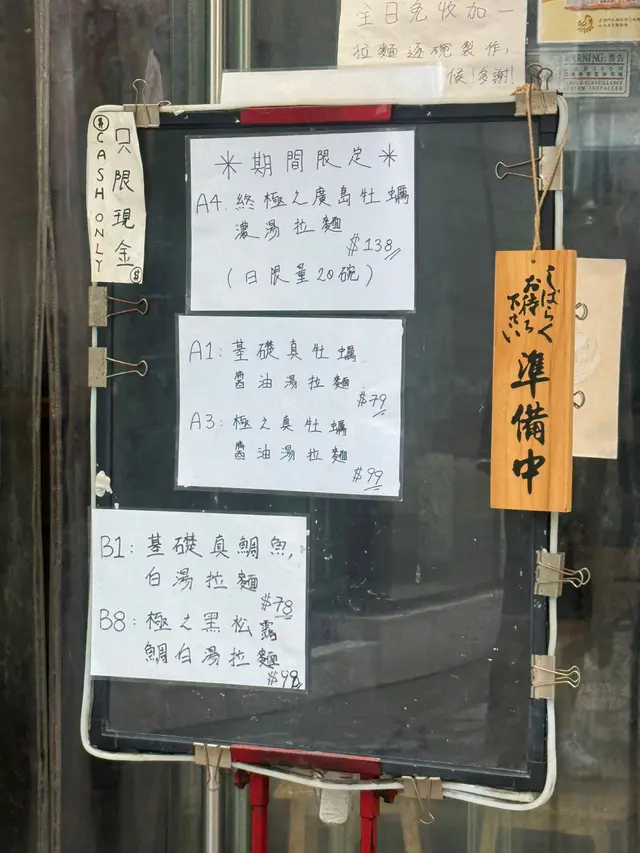 全日免收加一
拉麵逐碗製作,
候!多謝!
WARNING: 警告
SYSTEM INSTALLED
$
CASH ONLY
只限現金
$
*期間限定*
A4. 終極之廣島牡蠣
濃湯拉麵
$138
(日限量20碗)
A1: 基礎真牡蠣
醬油湯拉麵
$79
A3: 極之真牡蠣
醬油湯拉麵
$99
B1: 基礎真鯛魚,
白湯拉麵
$78
B8: 極之黑松露
鯛白湯拉麵
$98
しばらく
お待ち
下さい
準備中